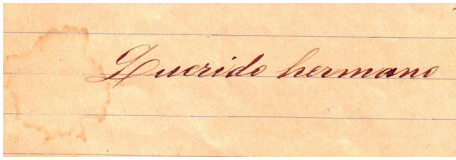 Querido hermano